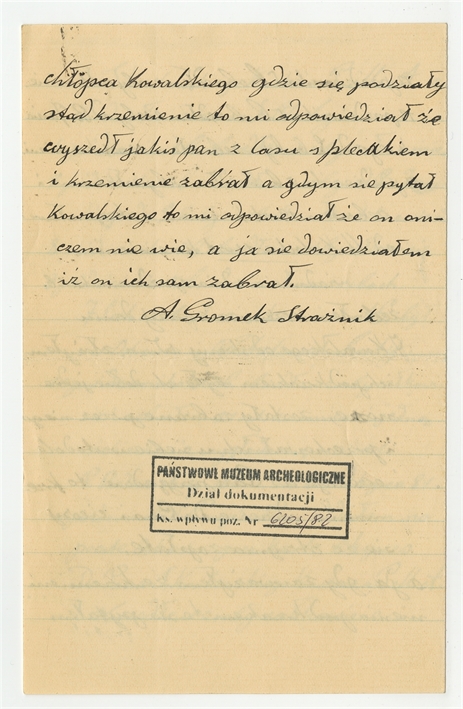 chłopca Kowalskiego gdzie się podziały
stąd krzemienie to mi odpowiedział że
wyszedł jakiś pan z lasu s plecakiem
i krzemienie zabrał a gdym sie pytał
Kowalskiego to mi odpowiedział że on oni-
czem nie wie, a ja sie dowiedziałem
iż on ich sam zabrał.
A. Gromek Strażnik
PAŃSTWOWE MUZEUM ARCHEOLOGICZNE
Dział dokumentacji
ks. wpływu poz. Nr 6205/82